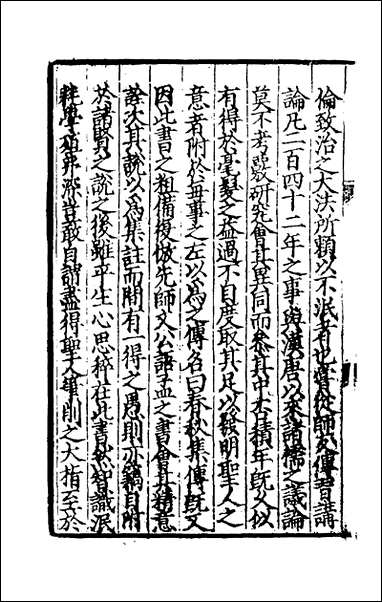 倫致治之大法所頼以不泯者也嘗從師友傳習講
論凡二百四十二年之事與漢唐以來諸儒之議論
莫不考覈研究會其異同而參其中否積年旣久似
有得於毫髮之益過不自度取其足以發明聖人之
意者附於每事之左以爲之傳名曰春秋集傳旣又
因此書之粗備復倣先師文公語孟之書會其精意
詮次其說以爲集註而間有一得之愚則亦竊自附
於諸賢之說之後雖平生心思粹在此書然智識泯
耗學殖弗深豈敢自謂盡得聖人筆削之大指至於